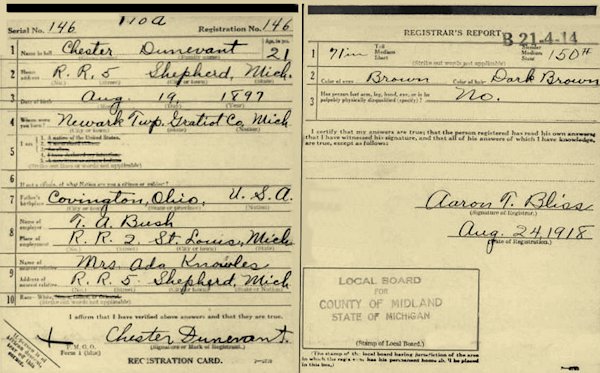 Serial No. 146 110A Registration No. 146
1 Name in full Chester Dunevant Age, in yrs. 21
(Given name) (Family name)
2 Home address R.R. 5 Shepherd, Mich.
(No.) (Street) (City or town) (State)
3 Date of birth Aug. 19 1897
(Month) (Day) (Year)
4 Where were you born? Newark Twp. Gratiot Co. Mich.
(City or town) (State) (Nation)
5 I am
1. A native of the United States.
(Strike out lines or words not applicable)
6 If not a citizen, of what Nation are you a citizen or subject?
7 Father's birthplace Covington, Ohio, U.S.A.
(City or town) (State or province) (Nation)
8 Name of employer T. A. Bush
Place of employment R.R. 2. St. Louis, Mich.
(No.) (Street) (City or town) (State)
9 Name of nearest relative Mrs. Ada Knowles
Address of nearest relative R.R. 5. Shepherd, Mich.
(No.) (Street) (City or town) (State or Nation)
10 Race—White,
(Strike out words not applicable)
I affirm that I have verified above answers and that they are true.
Chester Dunevant.
(Signature or Mark of Registrant.)
P. M. G. O.
Form 1 (blue)
REGISTRATION CARD.
REGISTRAR'S REPORT
B 21-4-14
1 71 in Tall Medium Short Slender Medium Stout 150#
(Strike out words not applicable)
2 Color of eyes Brown Color of hair Dark Brown
3 Has person lost arm, leg, hand, eye, or is he palpably physically disqualified (specify)? No.
I certify that my answers are true; that the person registered has read his own answers;
that I have witnessed his signature, and that all of his answers of which I have knowledge,
are true, except as follows:
Aaron T. Bliss
(Signature of Registrar.)
Aug. 24, 1918
(Date of Registration.)
LOCAL BOARD
FOR
COUNTY OF MIDLAND
STATE OF MICHIGAN
(Stamp of Local Board.)
(The stamp of the local board having jurisdiction of the area
in which the registrant has his permanent home shall be placed
in this box.)